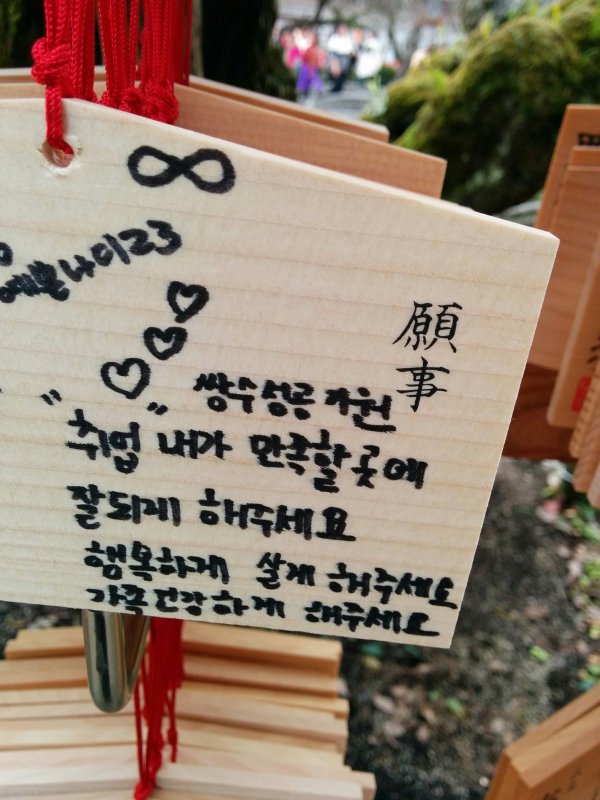 예쁜나이23
願事
쌍수성공기원
취업 내가 만족할곳에
잘되게 해주세요
행복하게 살게 해주세요
가족건강하게 해주세요